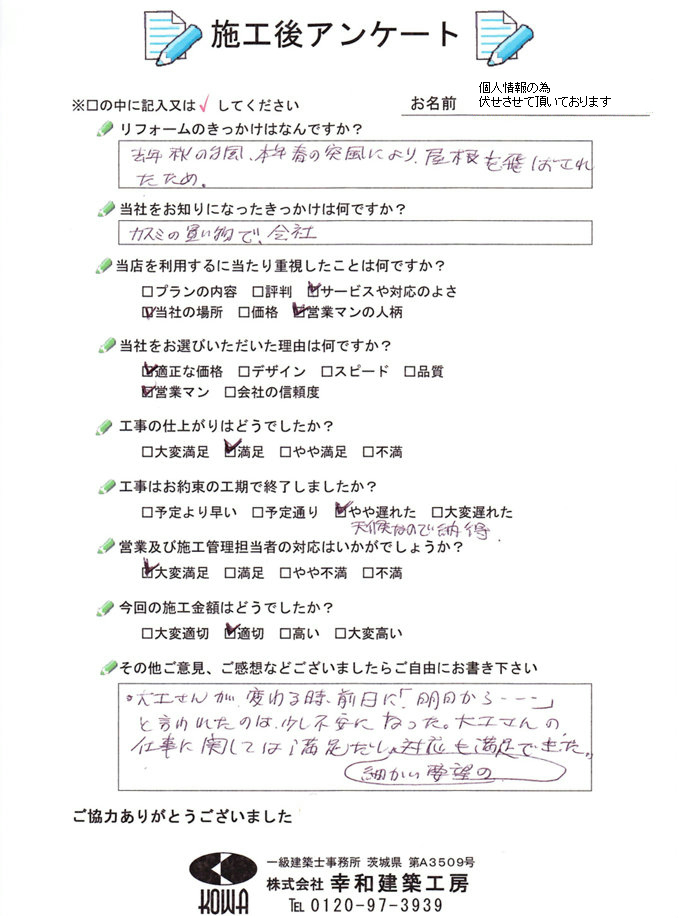 施工後アンケート
※□の中に記入又は✓してください
お名前
個人情報の為
伏せさせて頂いております
リフォームのきっかけはなんですか？
去年秋の台風、本年春の突風により、屋根を飛ばされ
たため。
当社をお知りになったきっかけは何ですか？
カスミの買い物で、会社
当店を利用するに当たり重視したことは何ですか？
□プランの内容 □評判 ☑サービスや対応のよさ
☑当社の場所 □価格 ☑営業マンの人柄
当社をお選びいただいた理由は何ですか？
☑適正な価格 □デザイン □スピード □品質
☑営業マン □会社の信頼度
工事の仕上がりはどうでしたか？
□大変満足 ☑満足 □やや満足 □不満
工事はお約束の工期で終了しましたか？
□予定より早い □予定通り ☑やや遅れた □大変遅れた
天候なので納得
営業及び施工管理担当者の対応はいかがでしょうか？
☑大変満足 □満足 □やや不満 □不満
今回の施工金額はどうでしたか？
□大変適切 ☑適切 □高い □大変高い
その他ご意見、ご感想などございましたらご自由にお書き下さい
・大工さんが変わる時、前日に「明日から----」
と言われたのは、少し不安になった。大工さんの
仕事に関しては満足だし、対応も満足できた。
細かい要望の
ご協力ありがとうございました
KOWA
一級建築士事務所 茨城県 第A3509号
株式会社 幸和建築工房
TEL 0120-97-3939